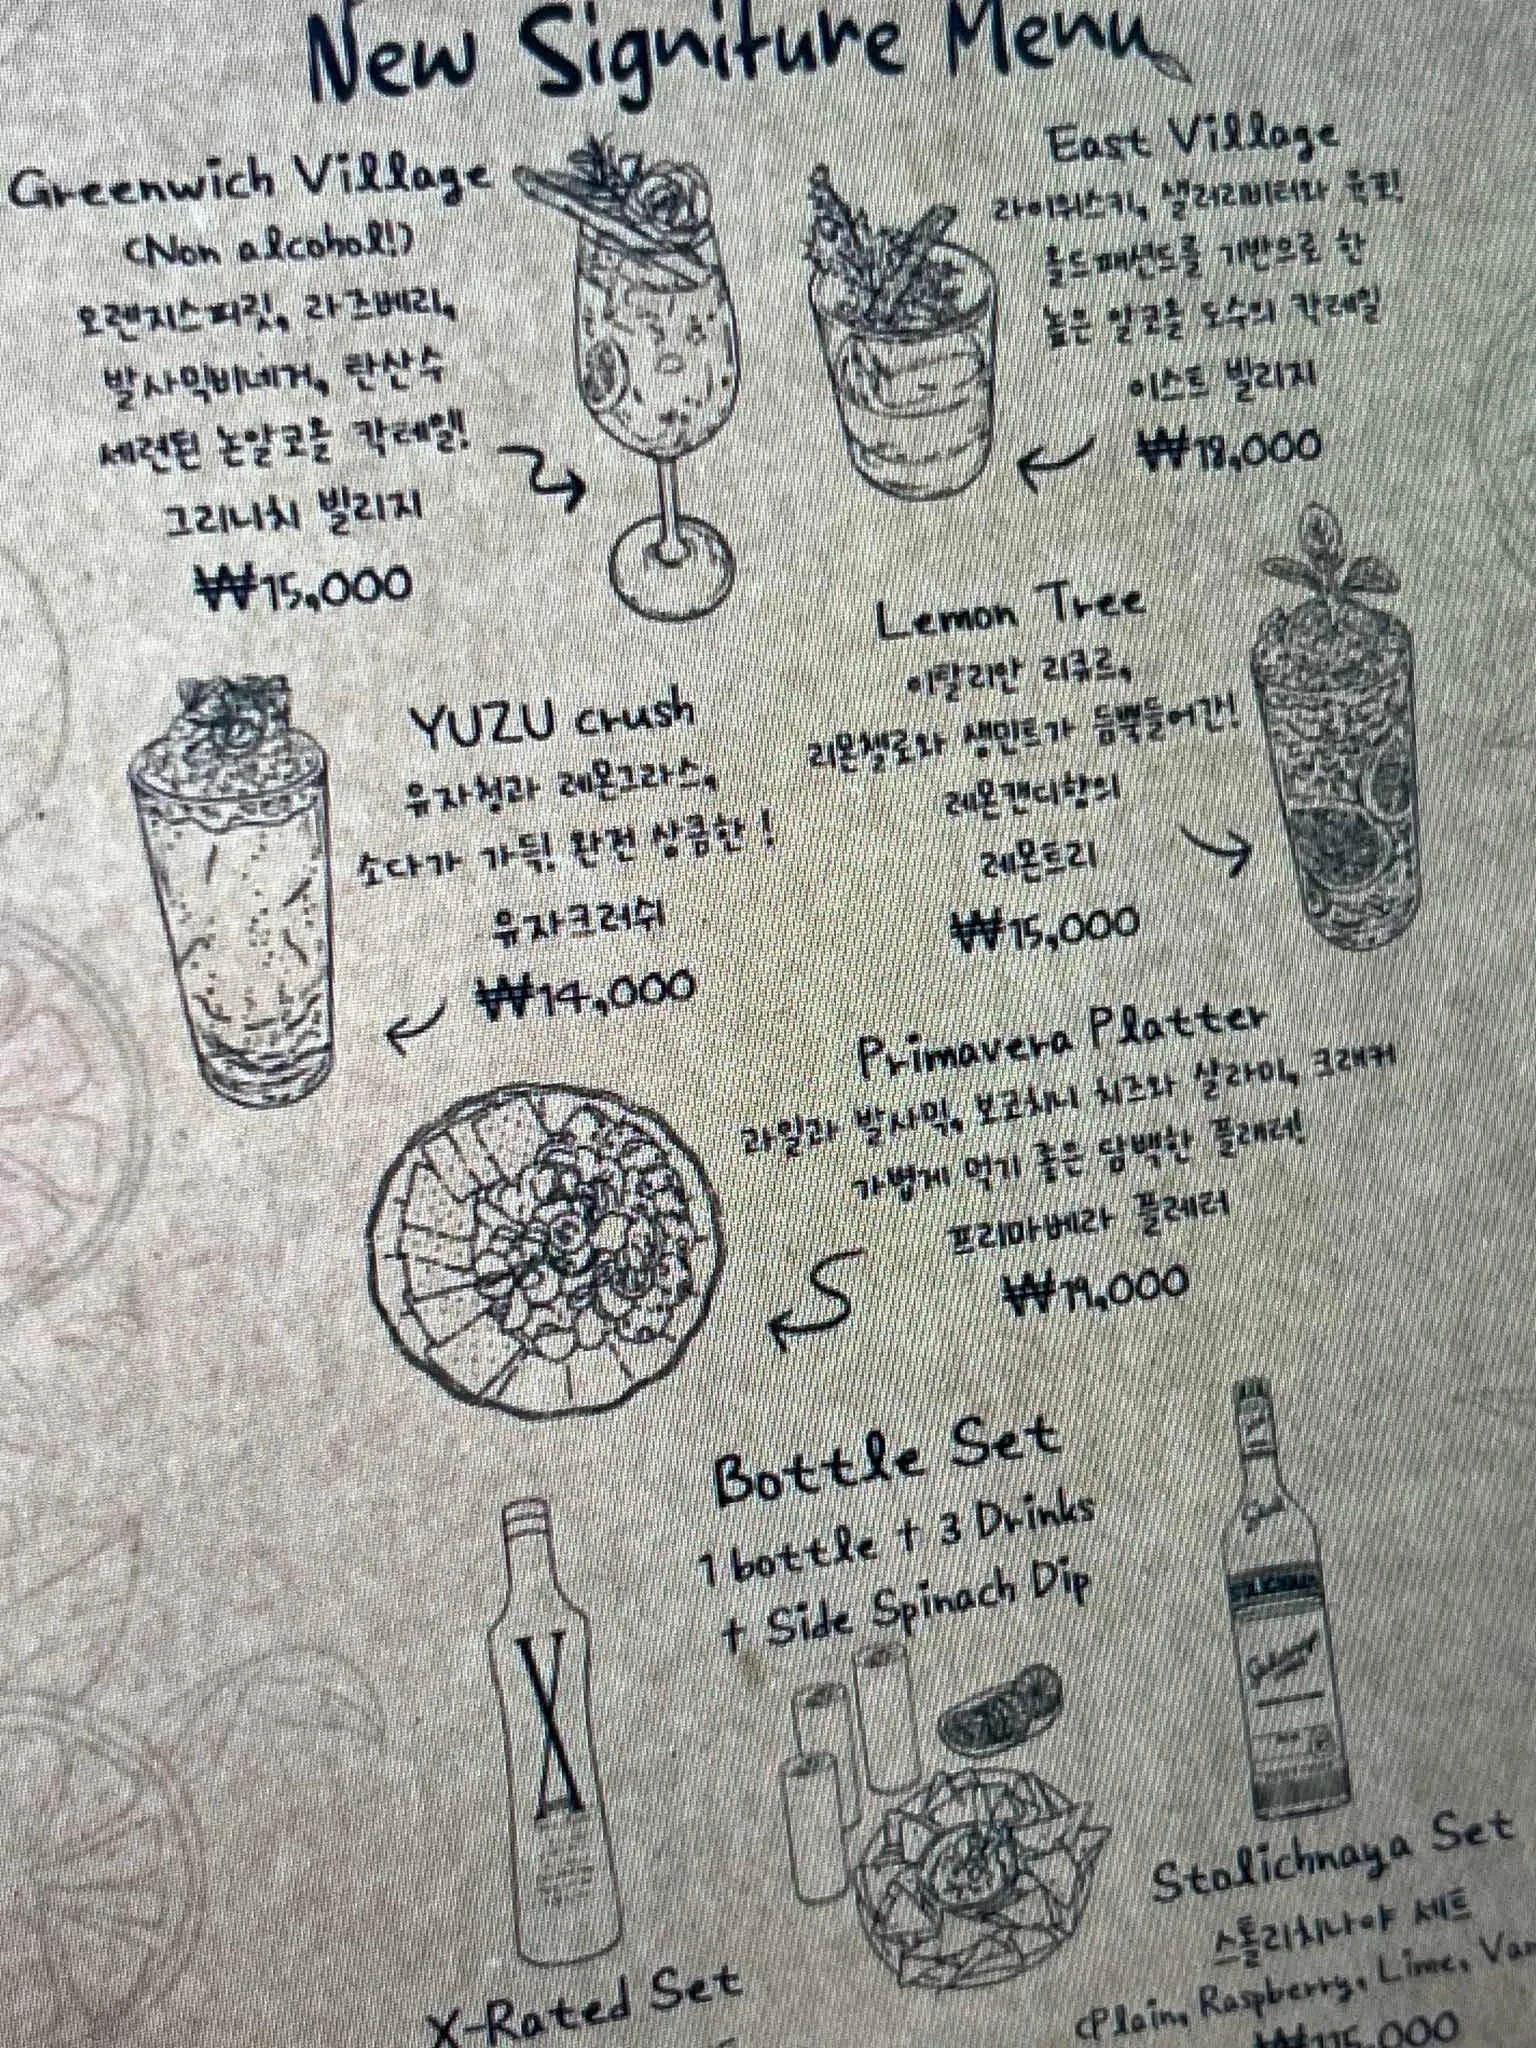 New Signiture Menu
Greenwich Village
(Non alcohol!)
오렌지스피릿, 라즈베리,
발사믹비네거, 탄산수
세련된 논알코올 칵테일!
그리니치 빌리지
₩15,000
East Village
라이위스키, 샐러리비터와 훅코!
올드패션드를 기반으로 한
높은 알코올 도수의 칵테일
이스트 빌리지
₩18,000
YUZU crush
유자청과 레몬그라스,
소다가 가득! 완전 상큼한!
유자크러쉬
₩14,000
Lemon Tree
이탈리안 리큐르,
리몬첼로와 생민트가 듬뿍들어간!
레몬캔디향의
레몬트리
₩15,000
Primavera Platter
과일과 발사믹, 보코치니 치즈와 살라미, 크래커
가볍게 먹기 좋은 담백한 플래터!
프리마베라 플레터
₩19,000
Bottle Set
1 bottle + 3 Drinks
+ Side Spinach Dip
X-Rated Set
Stolichnaya Set
스톨리치나야 세트
(Plain, Raspberry, Lime, Van
₩115,000